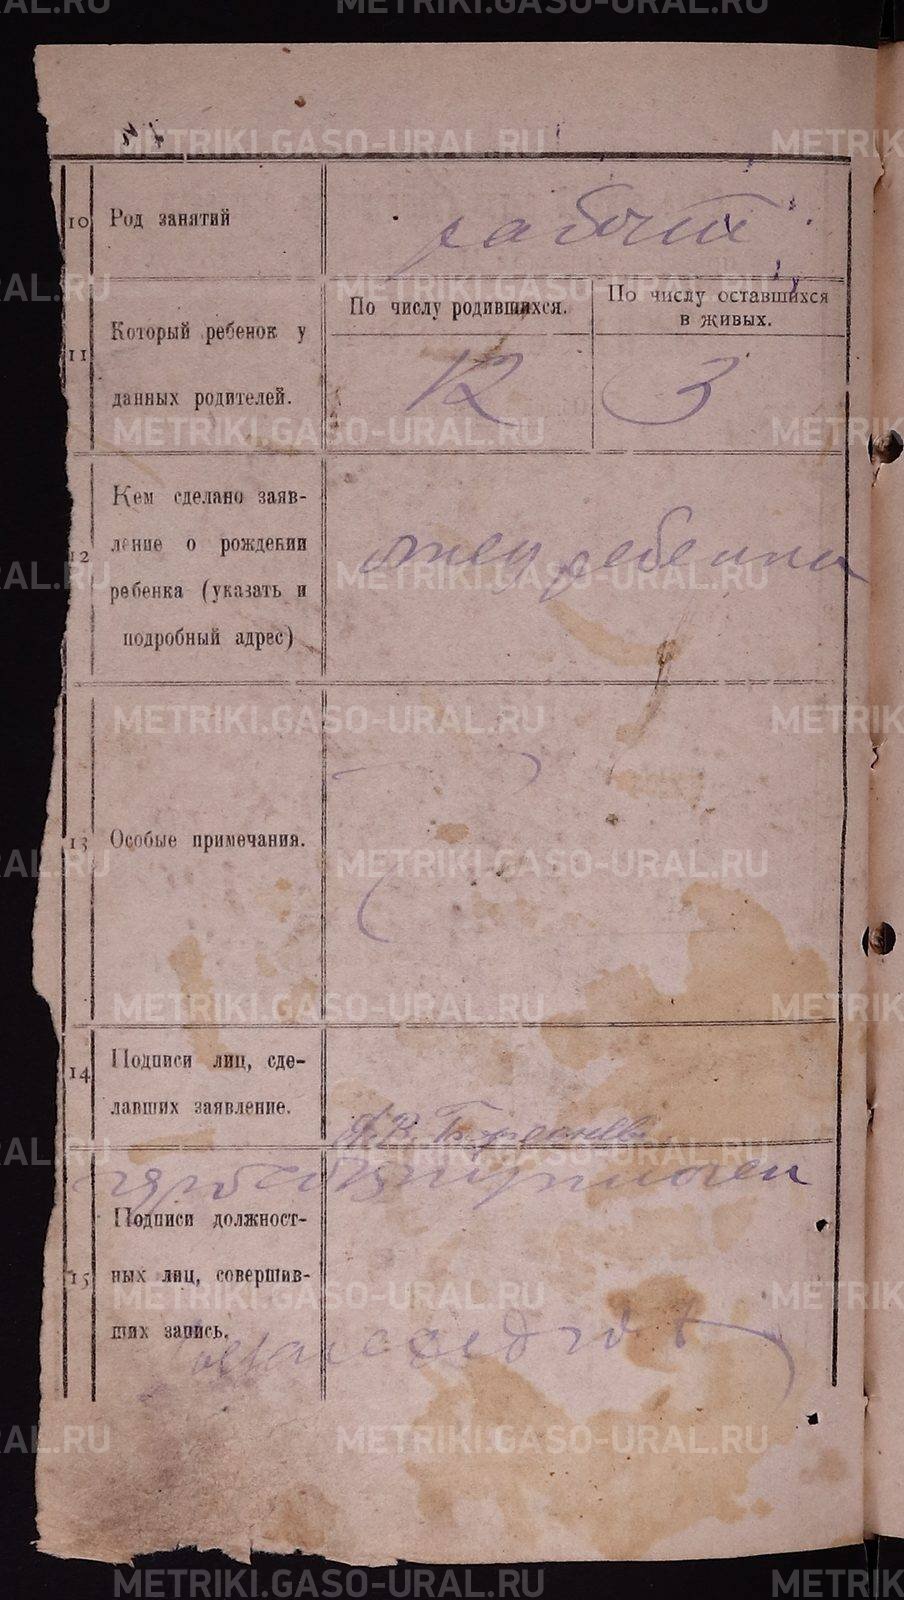 METRIKI.GASO-URAL.RU
10 Род занятий
рабочий
11 Который ребенок у
данных родителей.
По числу родившихся.
По числу оставшихся
в живых.
12
3
12 Кем сделано заяв-
ление о рождении
ребенка (указать и
подробный адрес)
отец ребенка
13 Особые примечания.
14 Подписи лиц, сде-
лавших заявление.
15 Подписи должност-
ных лиц, совершив-
ших запись.